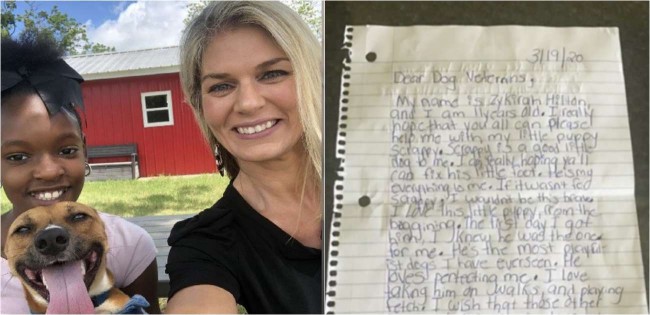 3/19/20
Dear Dog Veterans,
My name is Zykirah Hilton,
and I am 11 years old. I really
hope that you all can please
help me with my little puppy
Scrappy. Scrappy is a good little
dog to me. I am really hoping ya'll
can fix his little foot. He is my
everything to me. If it wasn't for
Scrappy I wouldn't be this
I love this little puppy, from the
The first day I got
him, I knew he was the one
for me. He's the most playful
dogs I have ever seen. He
loves me. I love
taking him on walks, and playing
fetch. I wish that those other